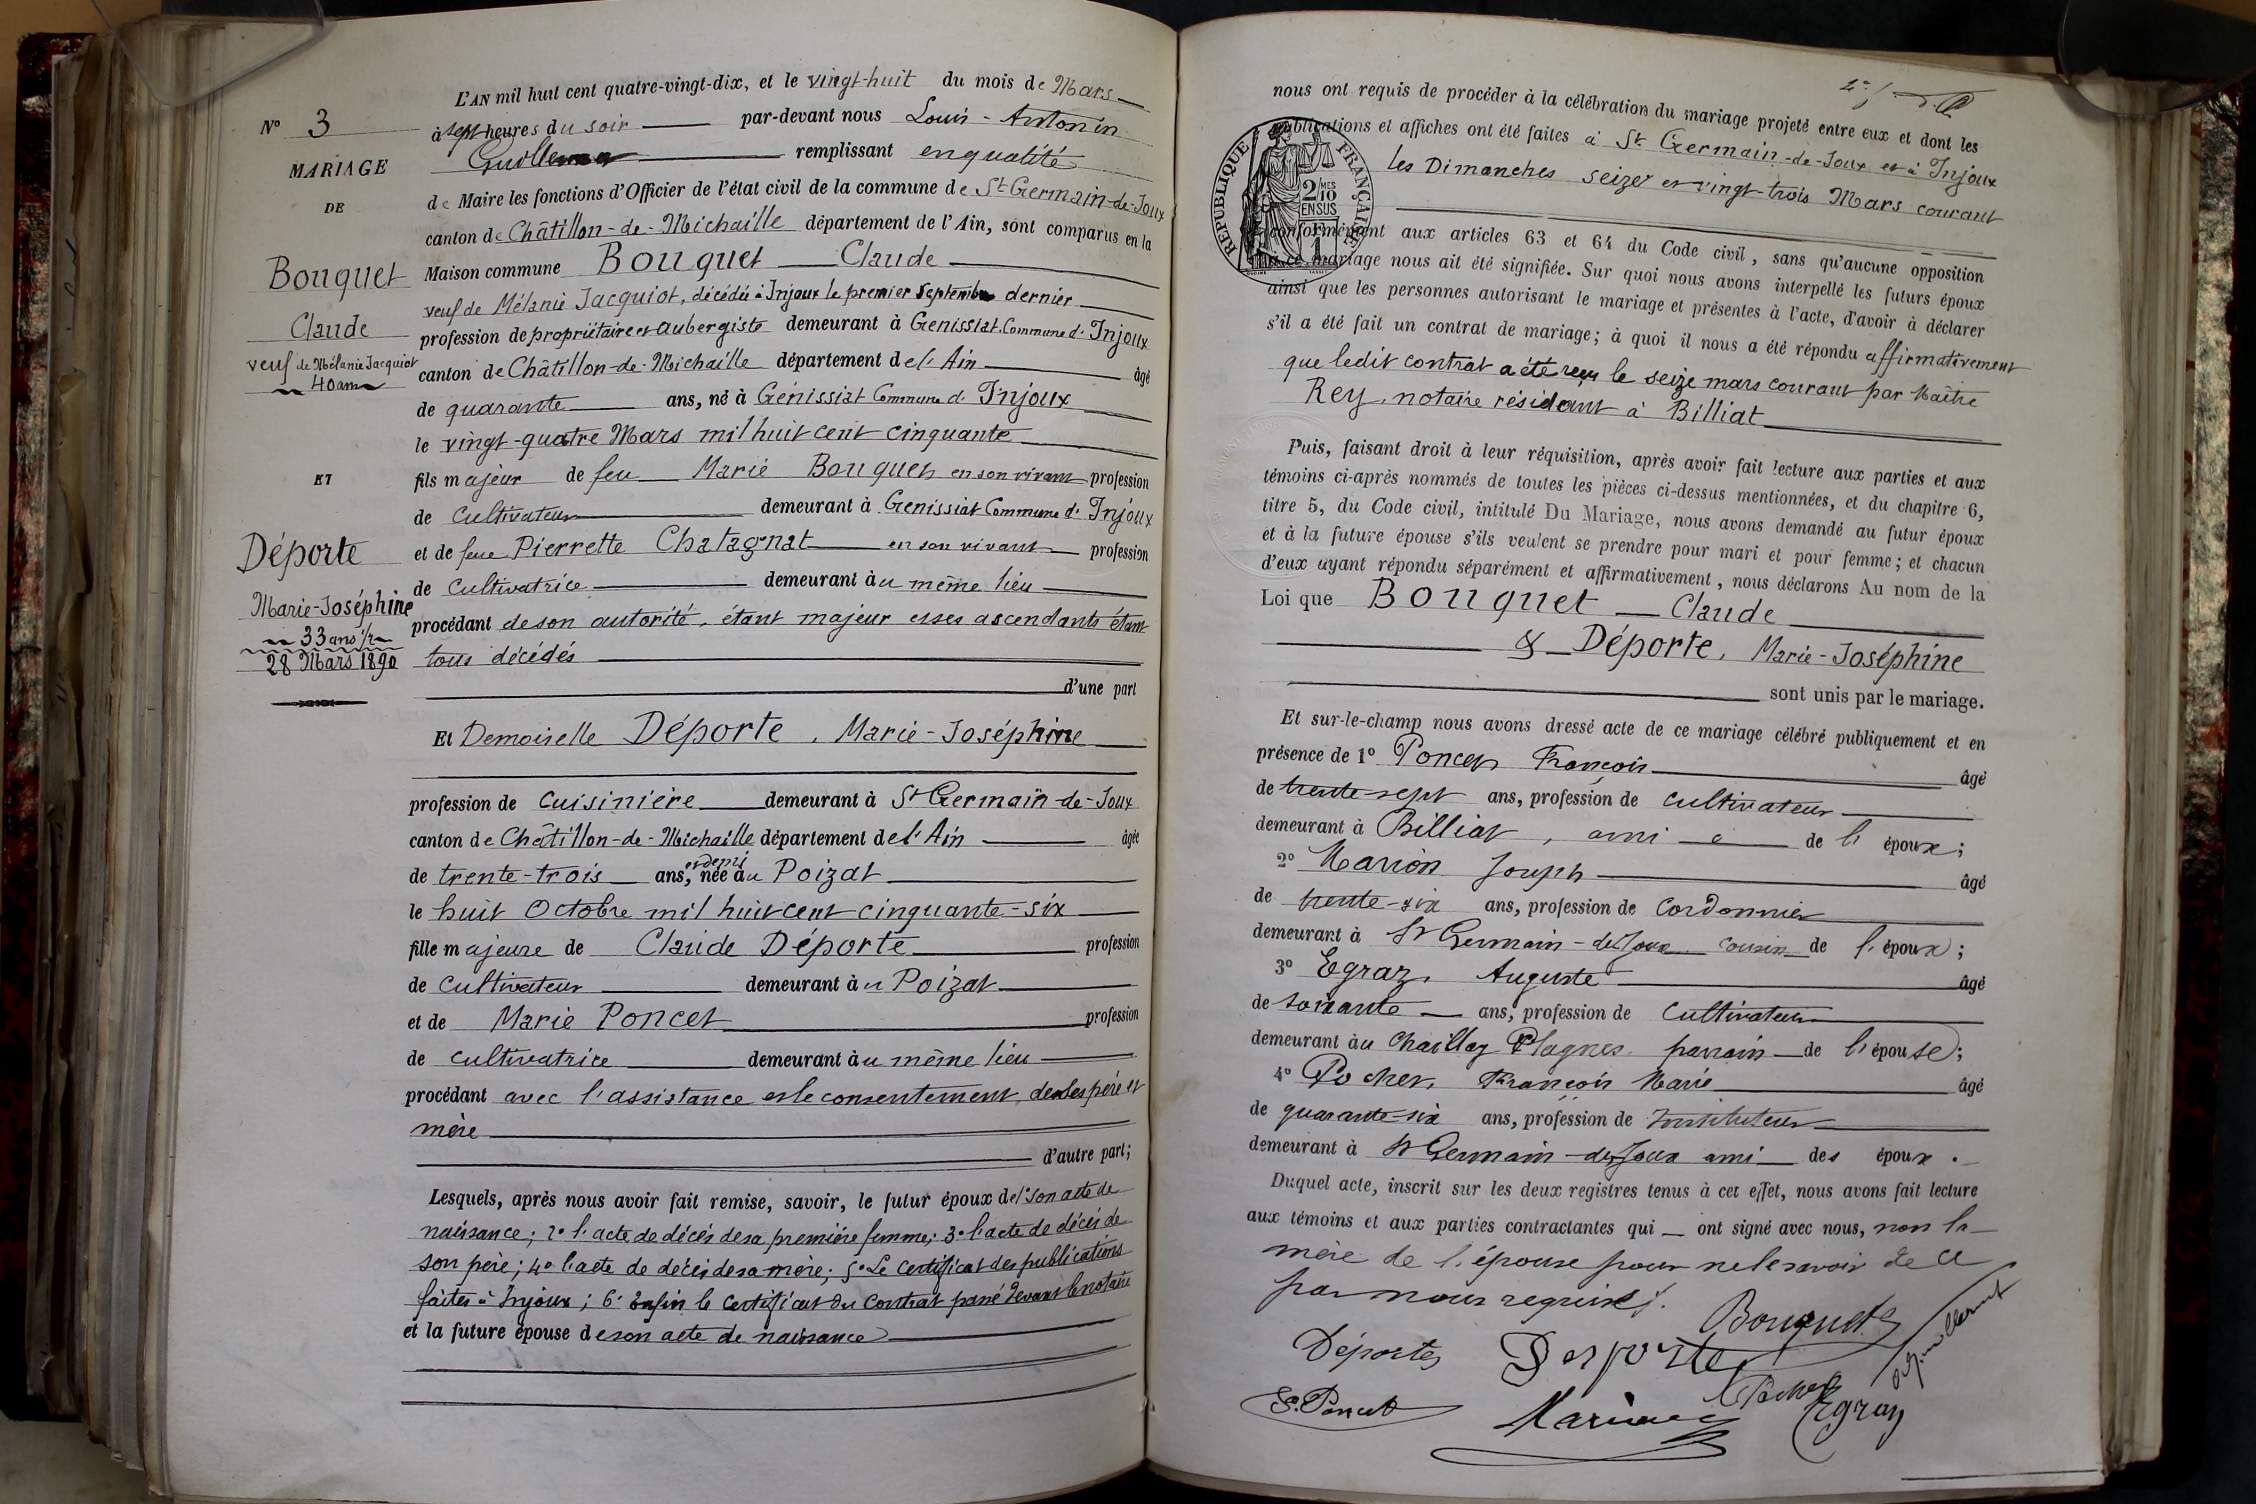 N° 3
MARIAGE
DE
Bouquet
Claude
veuf de Mélanie Jacquiot
40 ans
ET
Déporte
Marie-Joséphine
33 ans ½
28 Mars 1890
L'AN mil huit cent quatre-vingt-dix, et le vingt-huit du mois de Mars
à sept heures du soir par-devant nous Louis-Antonin
remplissant en qualité
de Maire les fonctions d'Officier de l'état civil de la commune de St Germain-de-Joux
canton de Châtillon-de-Michaille département de l'Ain, sont comparus en la
Maison commune Bouquet Claude
veuf de Mélanie Jacquiot, décédée à Injoux le premier Septembre dernier
profession de propriétaire et aubergiste demeurant à Genissiat Commune d'Injoux
canton de Châtillon-de-Michaille département de l'Ain âgé
de quarante ans, né à Génissiat Commune d'Injoux
le vingt-quatre Mars mil huit cent cinquante
fils majeur de feu Marie Bouquet en son vivant profession
de Cultivateur demeurant à Genissiat Commune d'Injoux
et de feue Pierrette Chatagnat en son vivant profession
de cultivatrice demeurant au même lieu
procédant de son autorité, étant majeur et ses ascendants étant
tous décédés
d'une part
Et Demoiselle Déporte, Marie-Joséphine
profession de cuisinière demeurant à St Germain-de-Joux
canton de Châtillon-de-Michaille département de l'Ain âgée
de trente-trois ans, et demi née au Poizat
le huit Octobre mil huit cent cinquante-six
fille majeure de Claude Déporte profession
de cultivateur demeurant au Poizat
et de Marie Poncet profession
de cultivatrice demeurant au même lieu
procédant avec l'assistance et le consentement de ses père et
mère
d'autre part;
Lesquels, après nous avoir fait remise, savoir, le futur époux de 1° son acte de
naissance; 2° l'acte de décès de sa première femme; 3° l'acte de décès de
son père; 4° l'acte de décès de sa mère; 5° Le certificat des publications
faites à Injoux; 6° Enfin le certificat du contrat passé devant le notaire
et la future épouse de son acte de naissance
nous ont requis de procéder à la célébration du mariage projeté entre eux et dont les
publications et affiches ont été faites à St Germain-de-Joux et à Injoux
les Dimanches seize et vingt-trois Mars courant
RÉPUBLIQUE FRANÇAISE
2/10
MES
EN SUS
1F
conformément aux articles 63 et 64 du Code civil, sans qu'aucune opposition
à ce mariage nous ait été signifiée. Sur quoi nous avons interpellé les futurs époux
ainsi que les personnes autorisant le mariage et présentes à l'acte, d'avoir à déclarer
s'il a été fait un contrat de mariage; à quoi il nous a été répondu affirmativement
que ledit contrat a été reçu le seize mars courant par Maître
Rey, notaire résidant à Billiat
Puis, faisant droit à leur réquisition, après avoir fait lecture aux parties et aux
témoins ci-après nommés de toutes les pièces ci-dessus mentionnées, et du chapitre 6,
titre 5, du Code civil, intitulé Du Mariage, nous avons demandé au futur époux
et à la future épouse s'ils veulent se prendre pour mari et pour femme; et chacun
d'eux ayant répondu séparément et affirmativement, nous déclarons Au nom de la
Loi que Bouquet Claude
& Déporte, Marie-Joséphine
sont unis par le mariage.
Et sur-le-champ nous avons dressé acte de ce mariage célébré publiquement et en
présence de 1° Poncet François âgé
de trente-sept ans, profession de cultivateur
demeurant à Billiat, ami de l'époux;
2° Marion Joseph âgé
de trente-six ans, profession de cordonnier
demeurant à St Germain-de-Joux cousin de l'époux;
3° Egraz, Auguste âgé
de soixante ans, profession de Cultivateur
demeurant au parrain de l'épouse;
4° Pochet, François Marie âgé
de quarante-six ans, profession de Instituteur
demeurant à St Germain-de-Joux ami des époux.
Duquel acte, inscrit sur les deux registres tenus à cet effet, nous avons fait lecture
aux témoins et aux parties contractantes qui ont signé avec nous, non la
mère de l'épouse pour ne le savoir de ce
par nous requise.
Bouquet
Déporte Desporte
Pochet
F. Poncet Marion Egraz